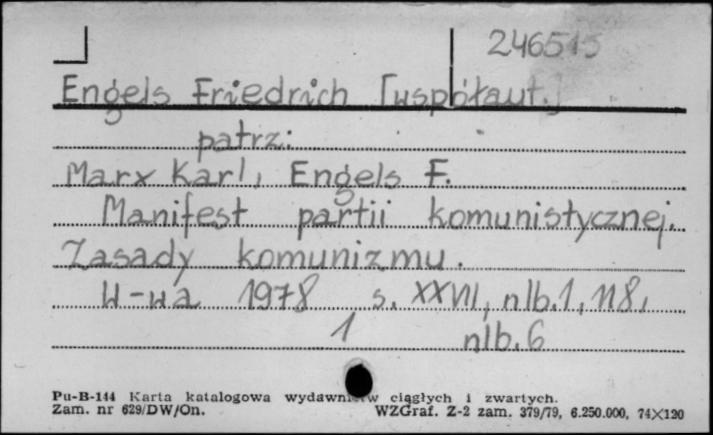 246515
Engels Friedrich [współaut.]
patrz:
Marx Karl, Engels F.
Manifest partii komunistycznej.
Zasady komunizmu.
W-wa 1978 s. XXVII, nlb. 1, 118,
1 nlb. 6
Pu-B-144 Karta katalogowa wydawnictw ciągłych i zwartych.
Zam. nr 629/DW/On. WZGraf. Z-2 zam. 379/79, 6.250.000, 74×120